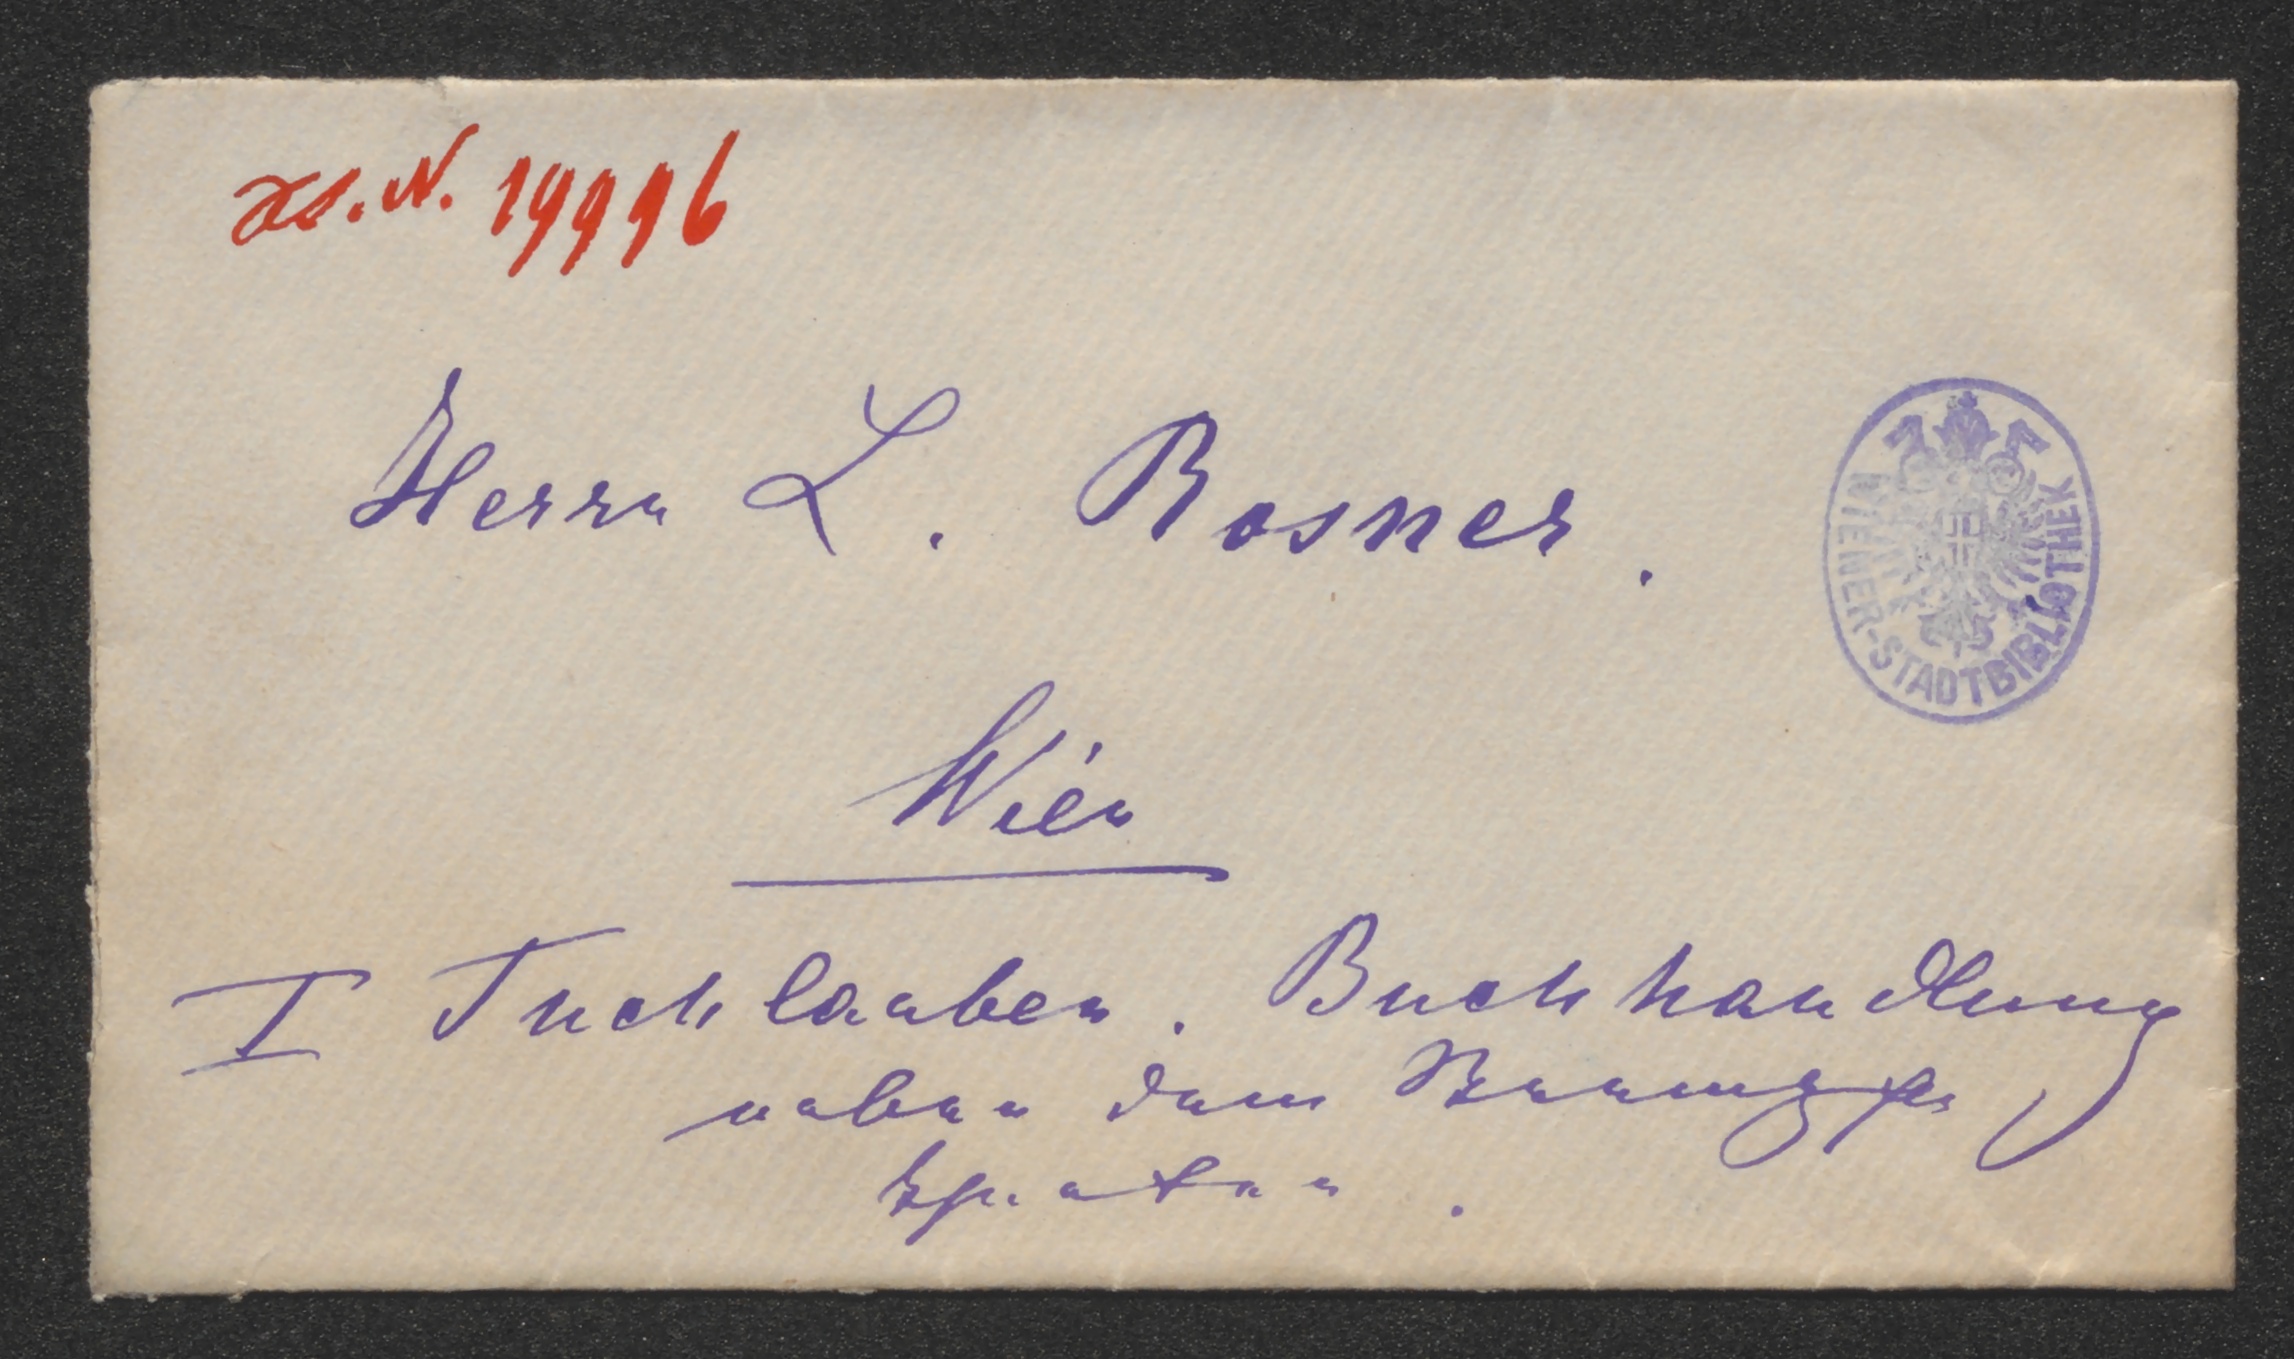 H.I.N. 19996
Herrn L. Rosner.
WIENER-STADTBIBLIOTHEK
Wien
I Tuchlauben. Buchhandlung
neben dem